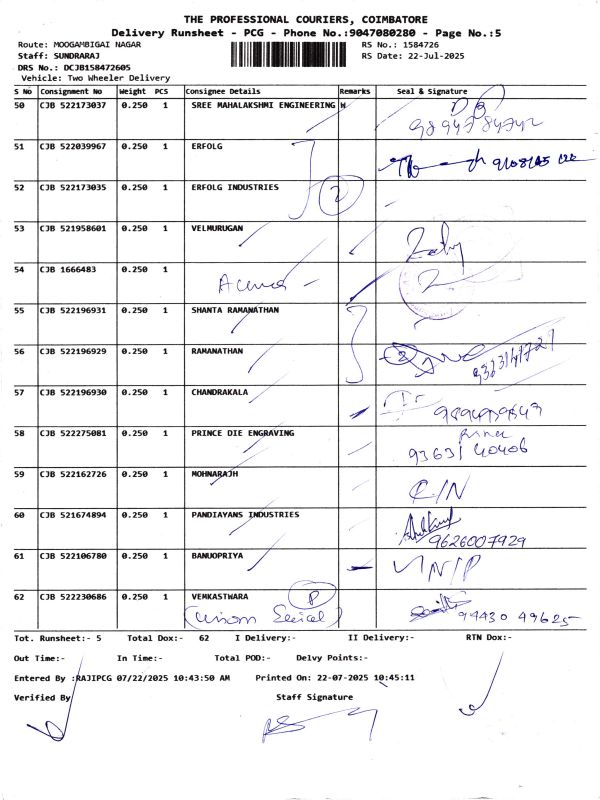 THE PROFESSIONAL COURIERS, COIMBATORE
Delivery Runsheet - PCG - Phone No.:9047080280 - Page No.:5
Route: MOOGAMBIGAI NAGAR RS No.: 1584726
Staff: SUNDRARAJ RS Date: 22-Jul-2025
DRS No.: DCJB158472605
Vehicle: Two Wheeler Delivery
S No Consignment No Weight PCS Consignee Details Remarks Seal & Signature
50 CJB 522173037 0.250 1 SREE MAHALAKSHMI ENGINEERING W
9894784742
51 CJB 522039967 0.250 1 ERFOLG
52 CJB 522173035 0.250 1 ERFOLG INDUSTRIES 2
53 CJB 521958601 0.250 1 VELMURUGAN
54 CJB 1666483 0.250 1
55 CJB 522196931 0.250 1 SHANTA RAMANATHAN
56 CJB 522196929 0.250 1 RAMANATHAN 2
57 CJB 522196930 0.250 1 CHANDRAKALA
58 CJB 522275081 0.250 1 PRINCE DIE ENGRAVING Prince
93631 40406
59 CJB 522162726 0.250 1 MOHNARAJH C/N
60 CJB 521674894 0.250 1 PANDIAYANS INDUSTRIES
9626007929
61 CJB 522106780 0.250 1 BANUOPRIYA N/P
62 CJB 522230686 0.250 1 VEMKASTWARA P
94430 49625
Tot. Runsheet:- 5 Total Dox:- 62 I Delivery:- II Delivery:- RTN Dox:-
Out Time:- In Time:- Total POD:- Delvy Points:-
Entered By :RAJIPCG 07/22/2025 10:43:50 AM Printed On: 22-07-2025 10:45:11
Verified By Staff Signature